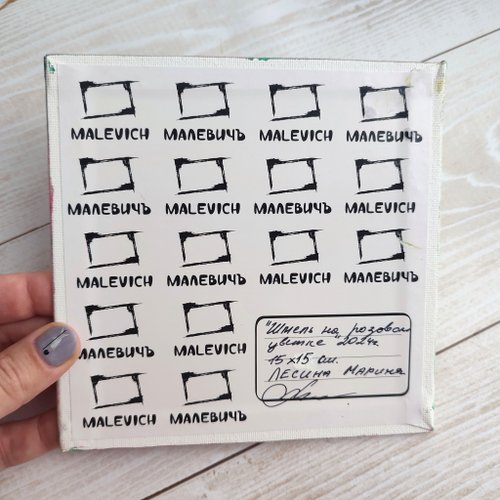 MALEVICH МАЛЕВИЧЪ MALEVICH МАЛЕВИЧЪ
МАЛЕВИЧЪ MALEVICH МАЛЕВИЧЪ MALEVICH
MALEVICH МАЛЕВИЧЪ MALEVICH МАЛЕВИЧЪ
МАЛЕВИЧЪ MALEVICH
MALEVICH МАЛЕВИЧЪ
"Шмель на розовом
цветке" 2024г.
15х15 см.
ЛЕСИНА МАРИНА